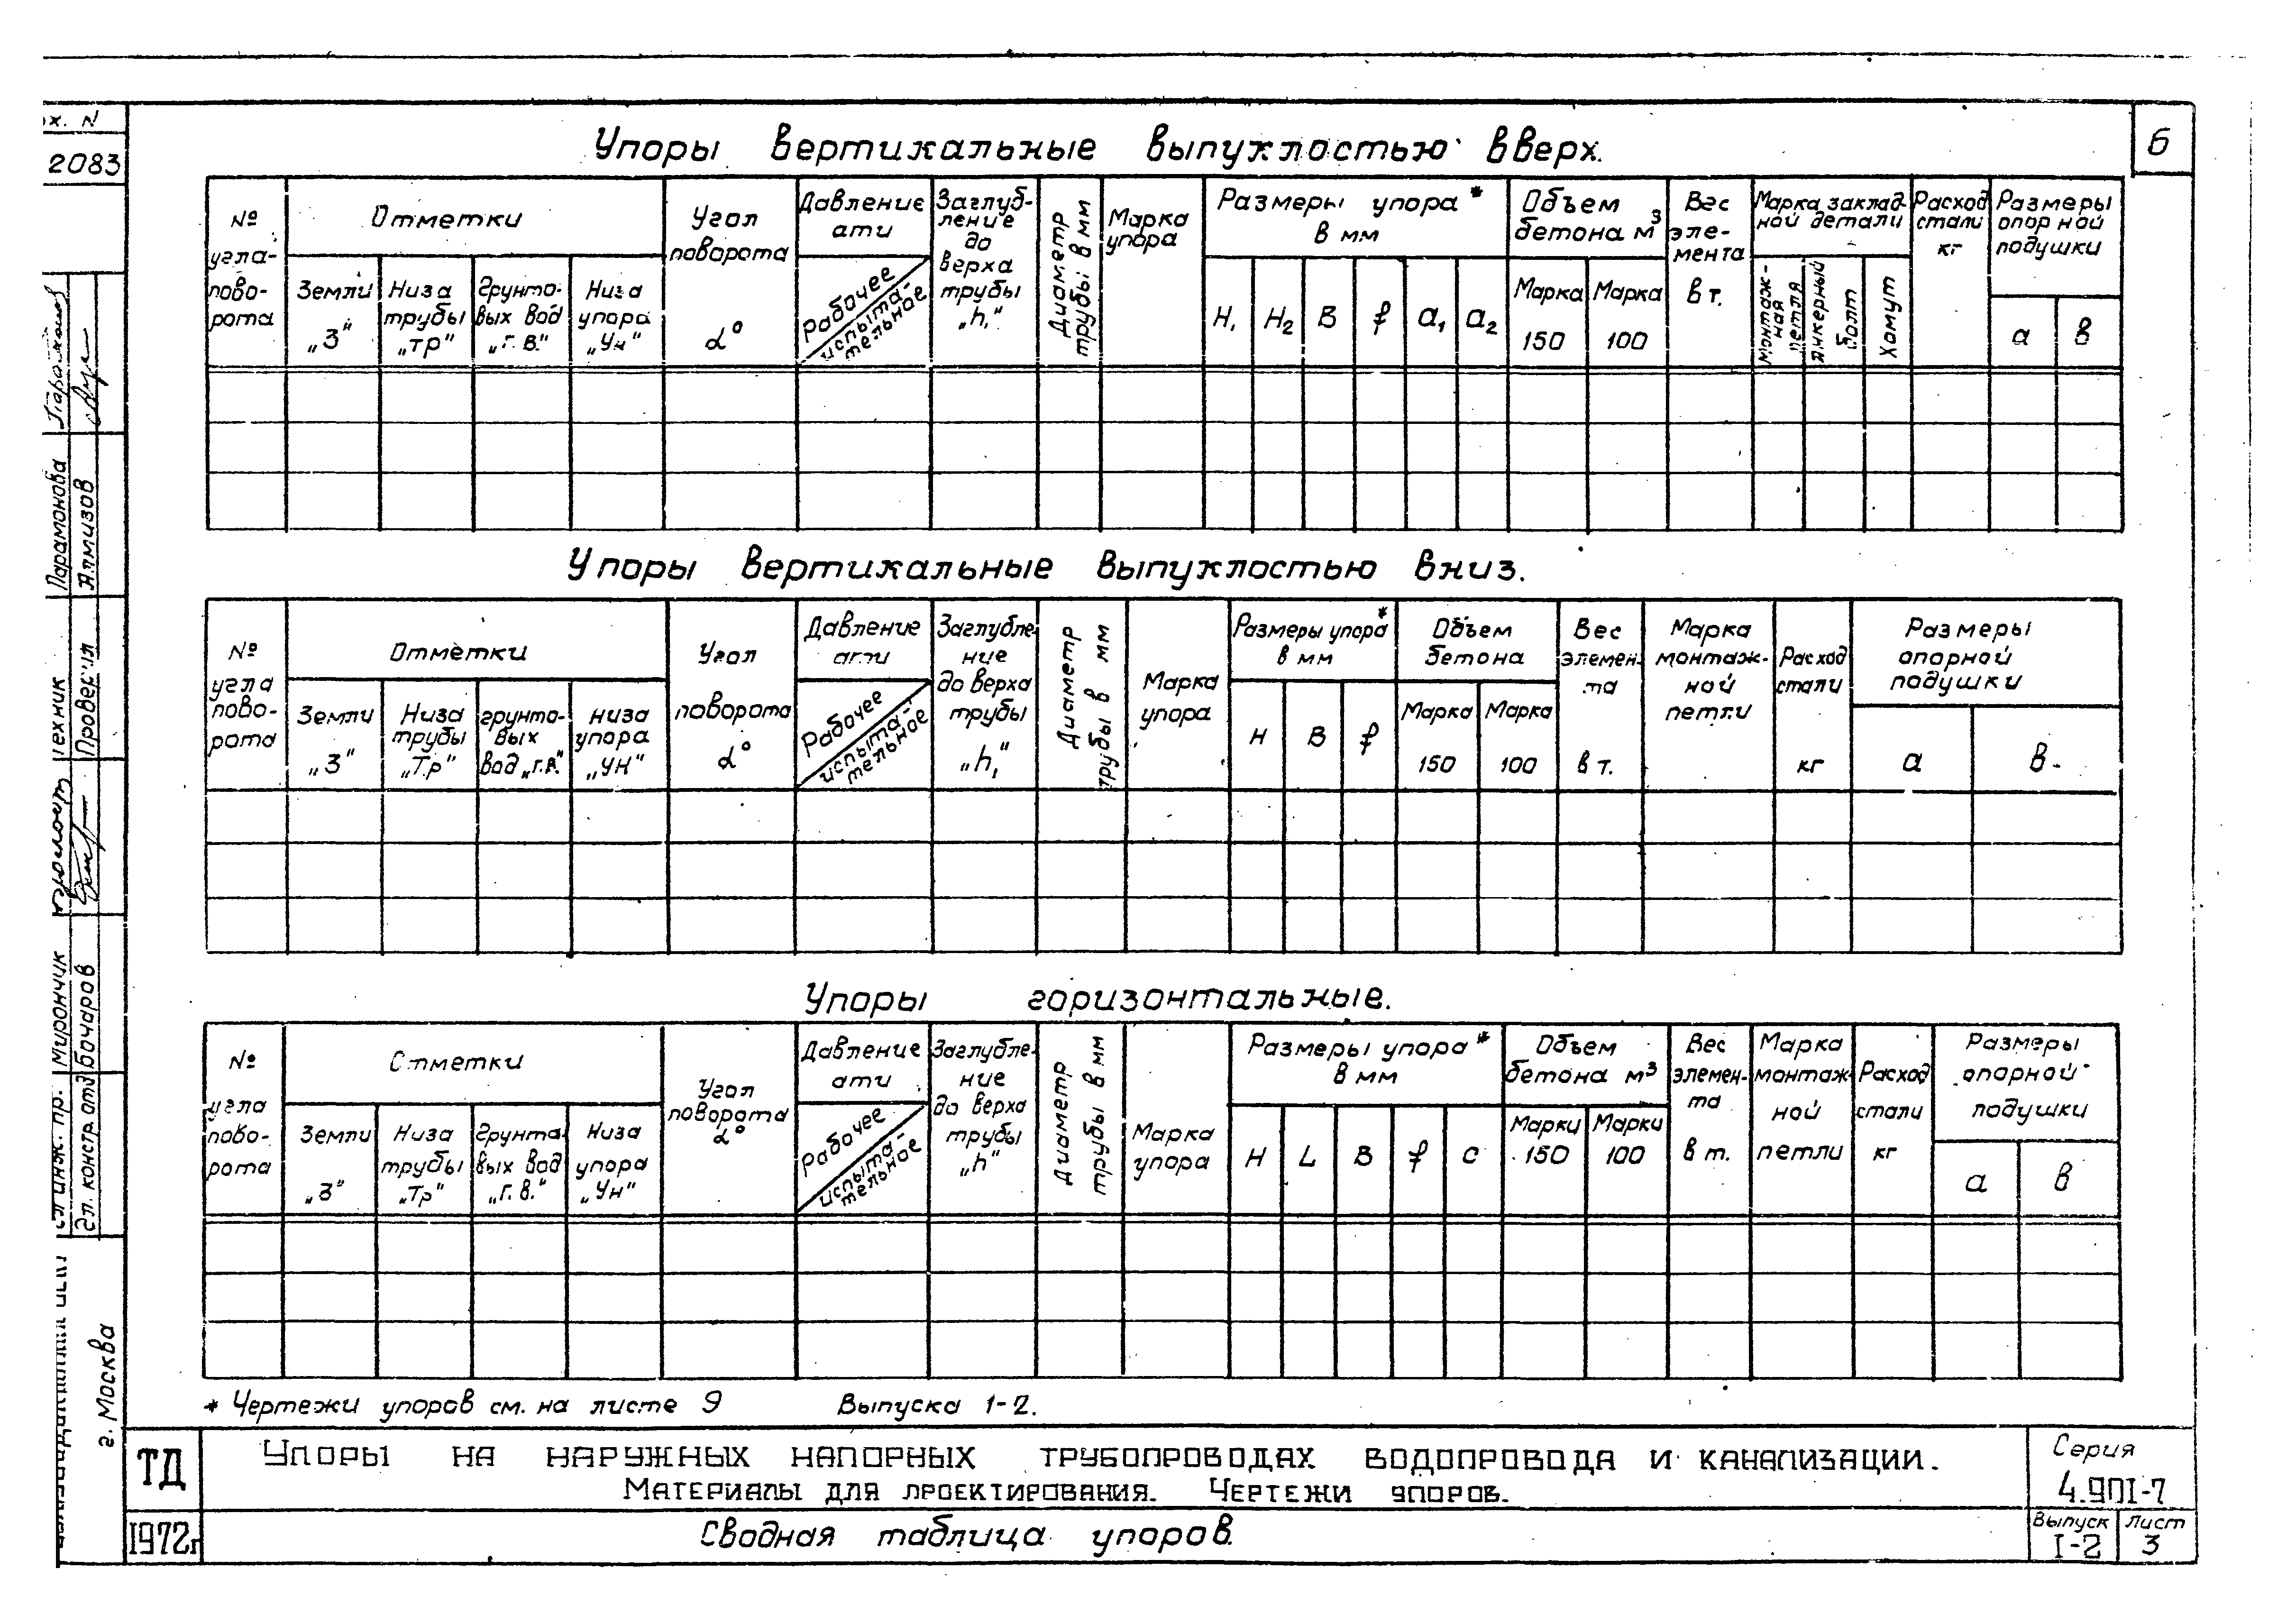 2083
6
Упоры вертикальные выпуклостью вверх.
№ угла поворота
Отметки
Земли „З“
Низа трубы „ТР“
Грунтовых вод „Г.В.“
Низа упора „Ун“
Угол поворота α°
Давление ати
Рабочее
испытательное
Заглубление до верха трубы „h₁“
Диаметр трубы в мм
Марка упора
Размеры упора * в мм
H₁ H₂ B f a₁ a₂
Объем бетона м³
Марка 150
Марка 100
Вес элемента в т.
Марка закладной детали
Монтажная петля
Анкерный болт
Хомут
Расход стали кг
Размеры опорной подушки
а в
Упоры вертикальные выпуклостью вниз.
№ угла поворота
Отметки
Земли „З“
Низа трубы „Т.р“
грунтовых вод „г.в.“
низа упора „УН“
Угол поворота α°
Давление ати
Рабочее
испытательное
Заглубление до верха трубы „h₁“
Диаметр трубы в мм
Марка упора
Размеры упора* в мм
H B f
Объем бетона
Марка 150
Марка 100
Вес элемента в т.
Марка монтажной петли
Расход стали кг
Размеры опорной подушки
а в
Упоры горизонтальные.
№ угла поворота
Отметки
Земли „З“
Низа трубы „Тр“
Грунтовых вод „Г.В.“
Низа упора „Ун“
Угол поворота α°
Давление ати
Рабочее
испытательное
Заглубление до верха трубы „h“
Диаметр трубы в мм
Марка упора
Размеры упора * в мм
H L B f C
Объем бетона м³
Марки 150
Марки 100
Вес элемента в т.
Марка монтажной петли
Расход стали кг
Размеры опорной подушки
а в
* Чертежи упоров см. на листе 9 Выпуска 1-2.
ТД
1972г
Упоры на наружных напорных трубопроводах водопровода и канализации.
Материалы для проектирования. Чертежи упоров.
Сводная таблица упоров.
Серия
4.901-7
Выпуск Лист
I-2 3
Техник Парамонова
Проверил Алмизов
Гл. инж. пр. Мирончик
Гл. констр. отд Бочаров
г. Москва